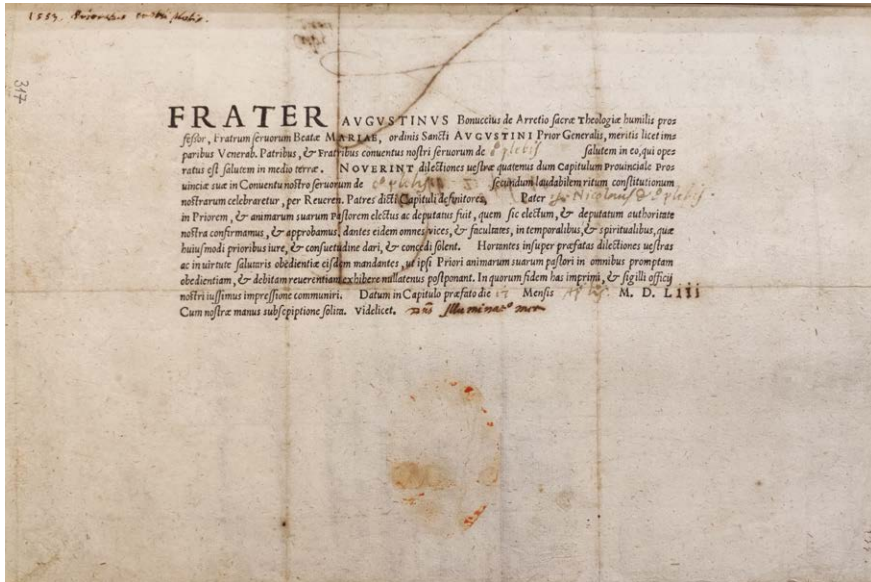 1553. Prioratus
317
FRATER AVGVSTINVS Bonuccius de Arretio sacræ Theologiæ humilis pro=
fessor, Fratrum seruorum Beatæ MARIAE, ordinis Sancti AVGVSTINI Prior Generalis, meritis licet im=
paribus Venerab. Patribus, & Fratribus conuentus nostri seruorum de plebis salutem in eo, qui ope=
ratus est salutem in medio terræ. NOVERINT dilectiones uestræ quatenus dum Capitulum Prouinciale Pro=
uinciæ suæ in Conuentu nostro seruorum de secundum laudabilem ritum constitutionum
nostrarum celebraretur, per Reueren. Patres dicti Capituli definitores, Pater Nicolaus plebis
in Priorem, & animarum suarum Pastorem electus ac deputatus fuit, quem sic electum, & deputatum authoritate
nostra confirmamus, & approbamus, dantes eidem omnes uices, & facultates, in temporalibus, & spiritualibus, quæ
huiusmodi prioribus iure, & consuetudine dari, & concedi solent. Hortantes insuper præfatas dilectiones uestras
ac in uirtute salutaris obedientiæ eisdem mandantes, ut ipsi Priori animarum suarum pastori in omnibus promptam
obedientiam, & debitam reuerentiam exhibere nullatenus postponant. In quorum fidem has imprimi, & sigilli officij
nostri iussimus impressione communiri. Datum in Capitulo præfato die Mensis M. D. Liii
Cum nostræ manus subscriptione solita. Videlicet.